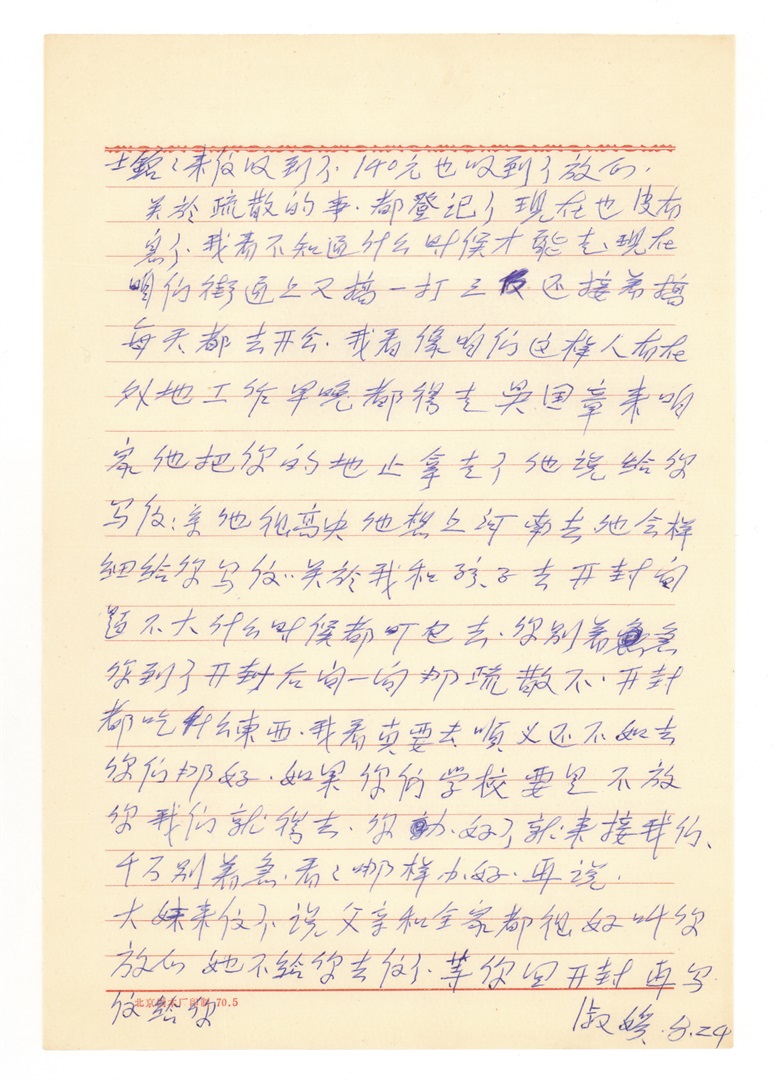 士銘：来仪收到了．140元也收到了放心．
关於疏散的事．都登记了现在也没有
急了．我看不知道什么时候才能走．现在
咱们街道上又搞一打三反还接着搞
每天都去开会．我看像咱们这样人有在
外地工作早晚都得走吴国章来咱
家他把你的地止拿走了他说给你
写仪；来他很高兴他想上河南去他会样
细给你写仪．关於我和孩子去开封问
题不大什么时候都可已去．你别着急
你到了开封后问一问那疏散不．开封
都吃什么東西．我看真要去順义还不如去
你们那好．如果你的学校要是不放
你我们就得去．你办好了就来接我们、
千万别着急．看看哪样办好．再说．
大妹来仪了说父亲和全家都很好叫你
放心她不给你去仪了等你回开封再写
仪给你
北京 厂 70.5
淑 8.24